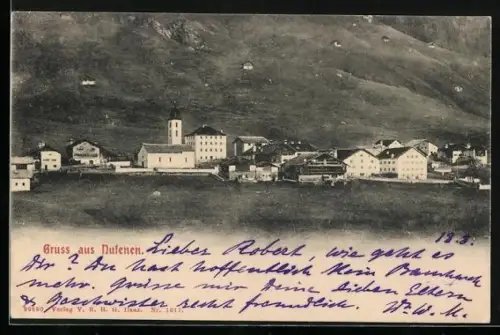 Gruss aus Nufenen.
18.8.
Lieber Robert, wie geht es
Dir? Du hast hoffentlich kein Bauchweh
mehr. Grüsse mir Deine lieben Eltern
& Geschwister recht freundlich.
Verlag V. S. H. O.